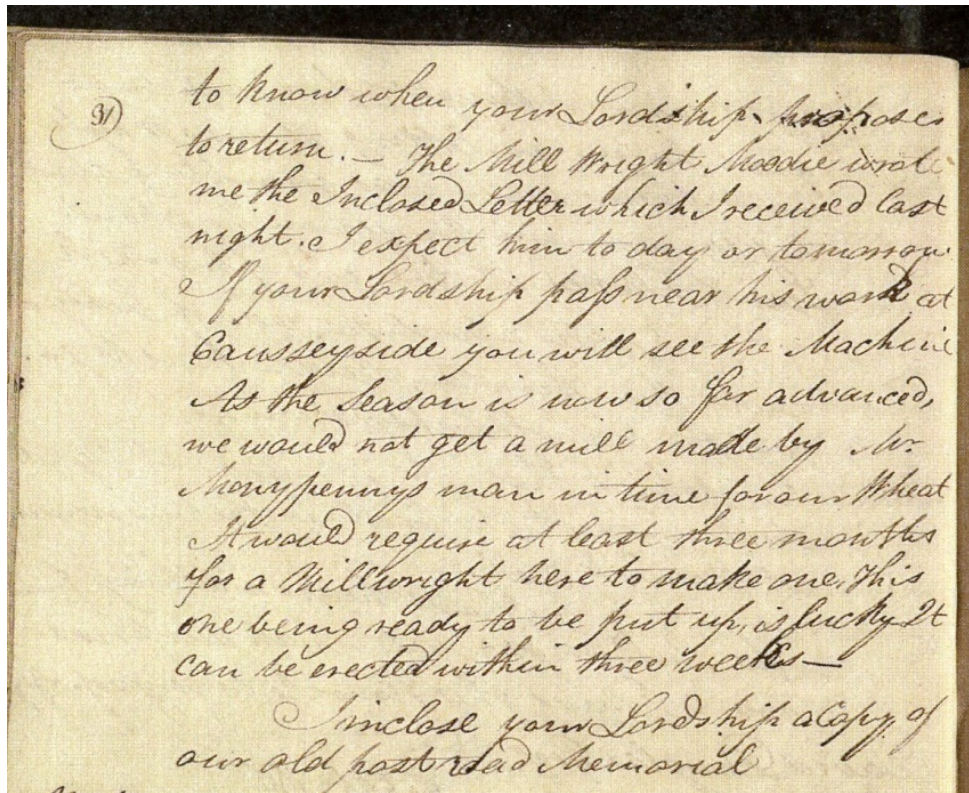 31
to know when your Lordship proposes
to return. — The Mill Wright Moodie wrote
me the Inclosed Letter which I received last
night. I expect him to day or tomorrow
If your Lordship pass near his work at
Causseyside you will see the Machine
As the Season is now so far advanced,
we would not get a mill made by Mr.
Monypennys man in time for our Wheat
It would require at least three months
for a Millwright here to make one, This
one being ready to be put up, is lucky It
can be erected within three weeks —
I inclose your Lordship a Copy of
our old post road Memorial